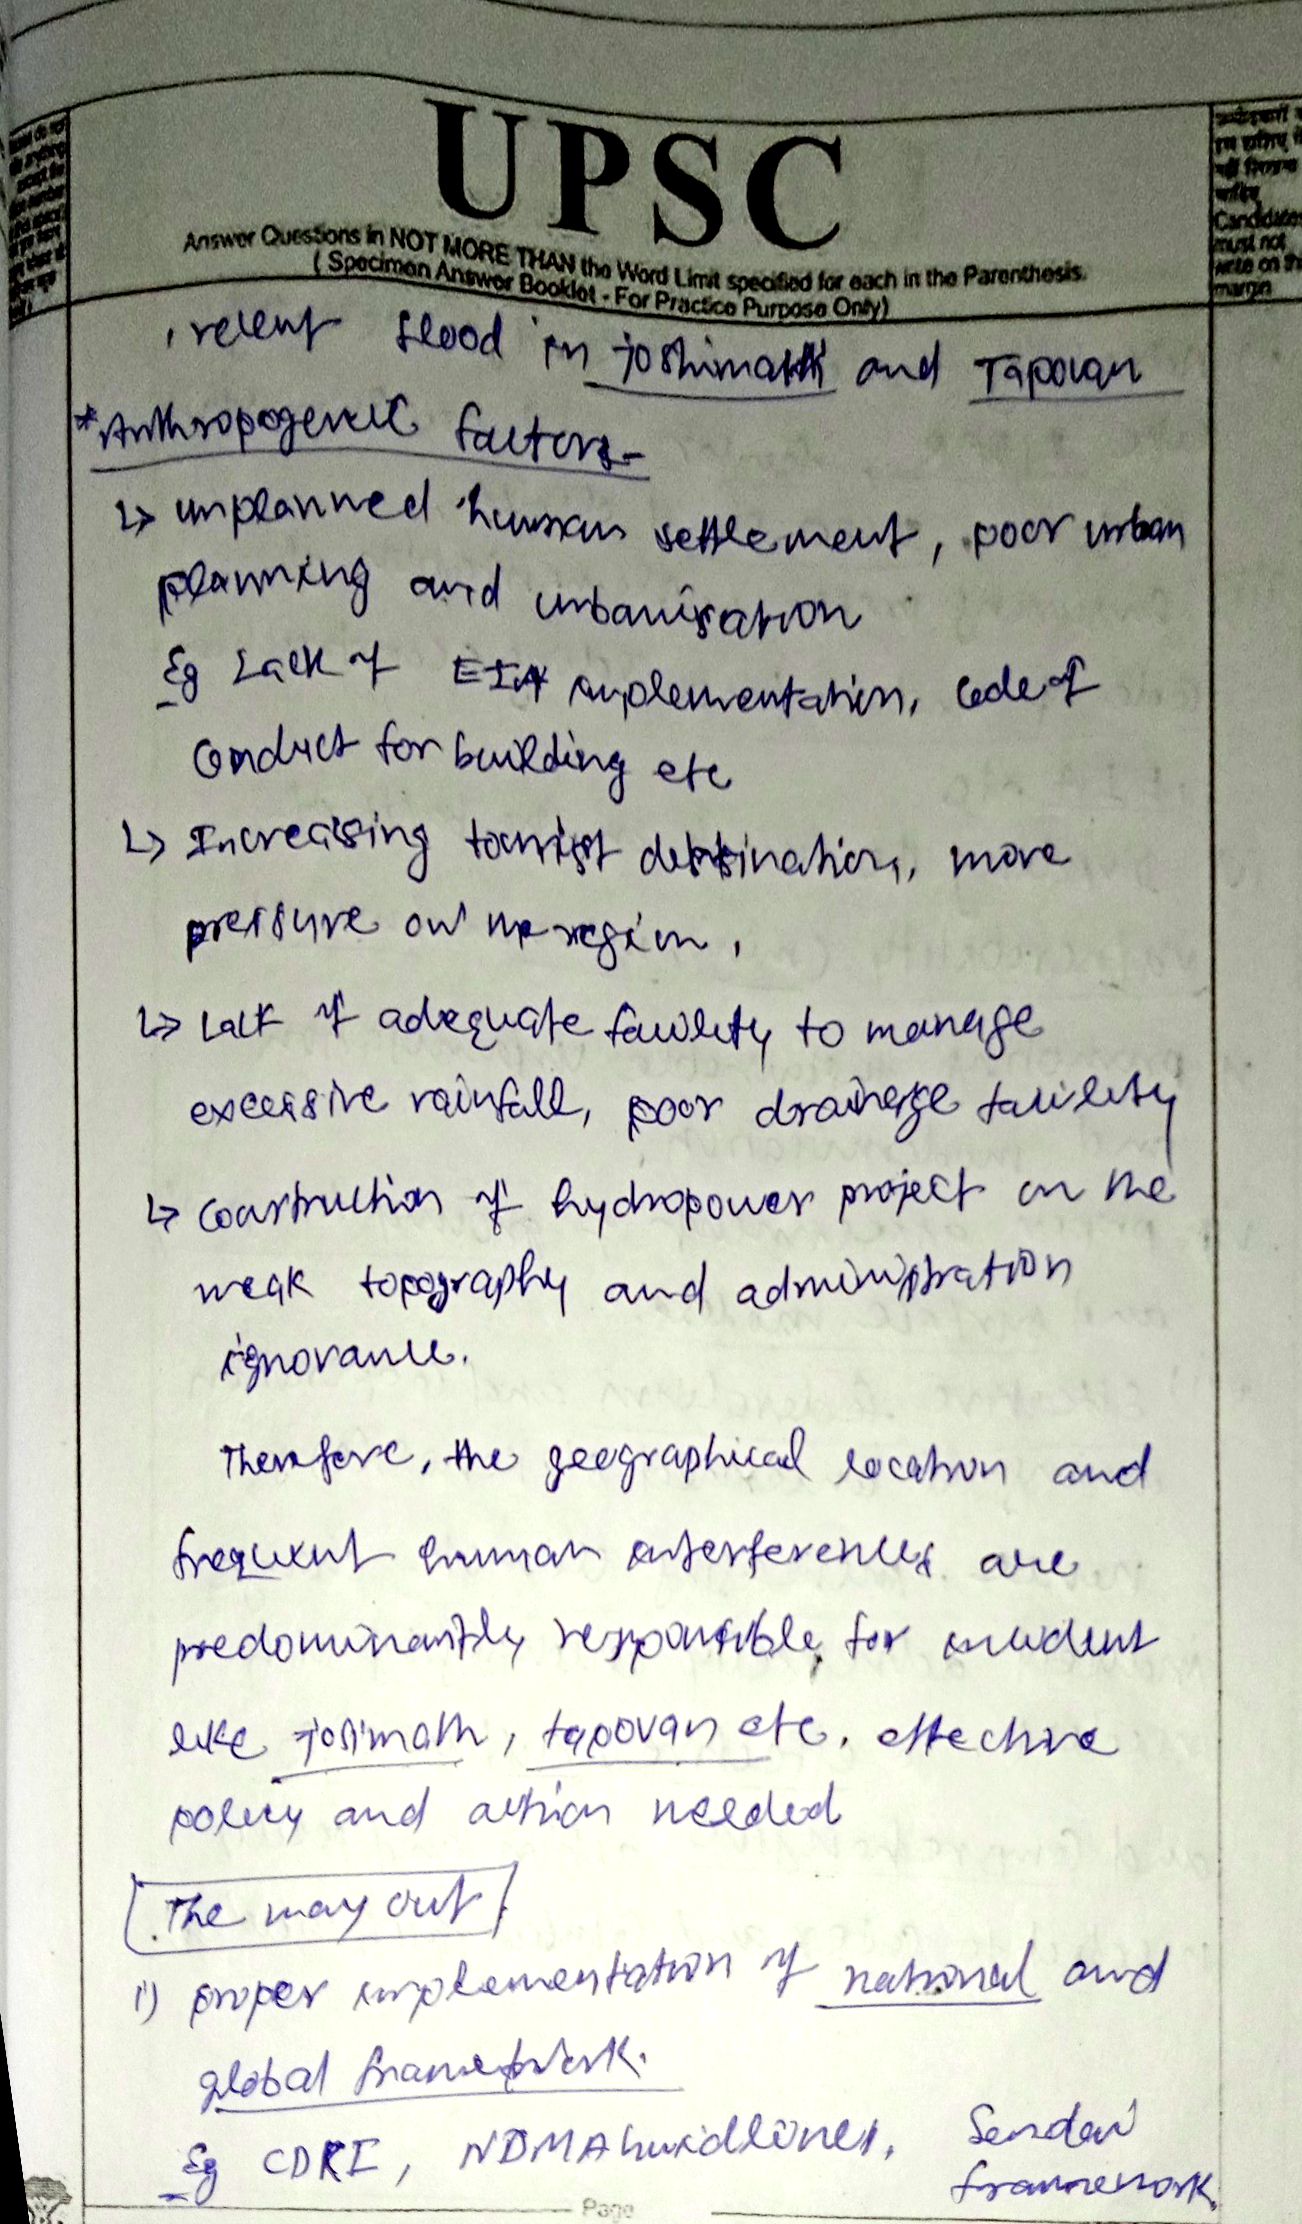 UPSC
Answer Questions in NOT MORE THAN the Word Limit specified for each in the Parenthesis.
( Specimen Answer Booklet - For Practice Purpose Only)
Candidates
must not
write on the
margin
, recent flood in Joshimath and Tapovan
*Anthropogenic factors-
↳ unplanned human settlement, poor urban
planning and urbanisation
Eg Lack of EIA implementation, Code of
Conduct for building etc
↳ Increasing tourist destination, more
pressure on the region.
↳ Lack of adequate facility to manage
excessive rainfall, poor drainage facility
↳ Construction of hydropower project on the
weak topography and administration
ignorance.
Therefore, the geographical location and
frequent human interferences are
predominantly responsible for incident
like Josimath, tapovan etc. effective
policy and action needed
The way out
i) proper implementation of national and
global framework.
Eg CDRI, NDMA Guidlines, Sendai
framework.
Page